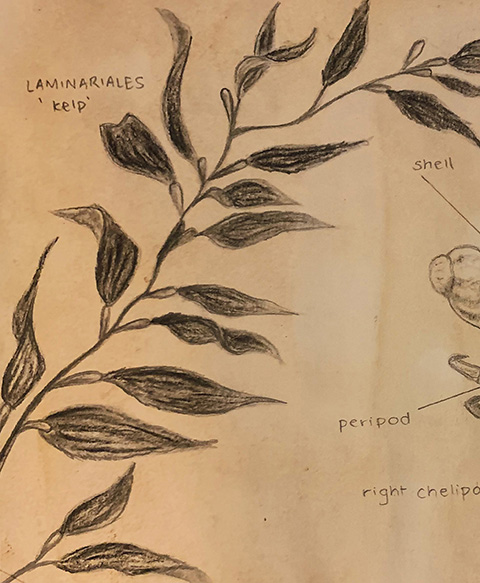 LAMINARIALES
'kelp'
shell
peripod
right chelipo